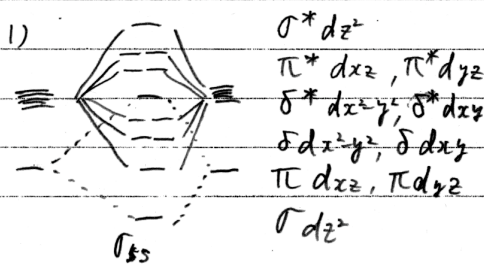 1)
σ* dz²
π* dxz, π* dyz
δ* dx²-y², δ* dxy
δ dx²-y², δ dxy
π dxz, π dyz
σ dz²
σ5s